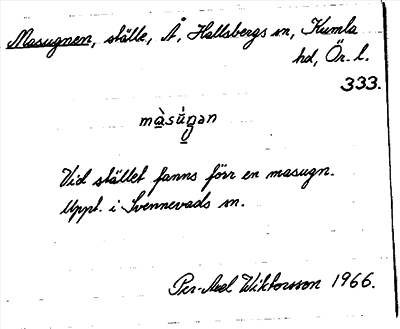 Masugnen, ställe, Å, Hallsbergs sn, Kumla
hd, Ör. l.
333.
màsúgən
Vid stället fanns förr en masugn.
Uppt. i Svennevads sn.
Per-Axel Wiktorsson 1966.